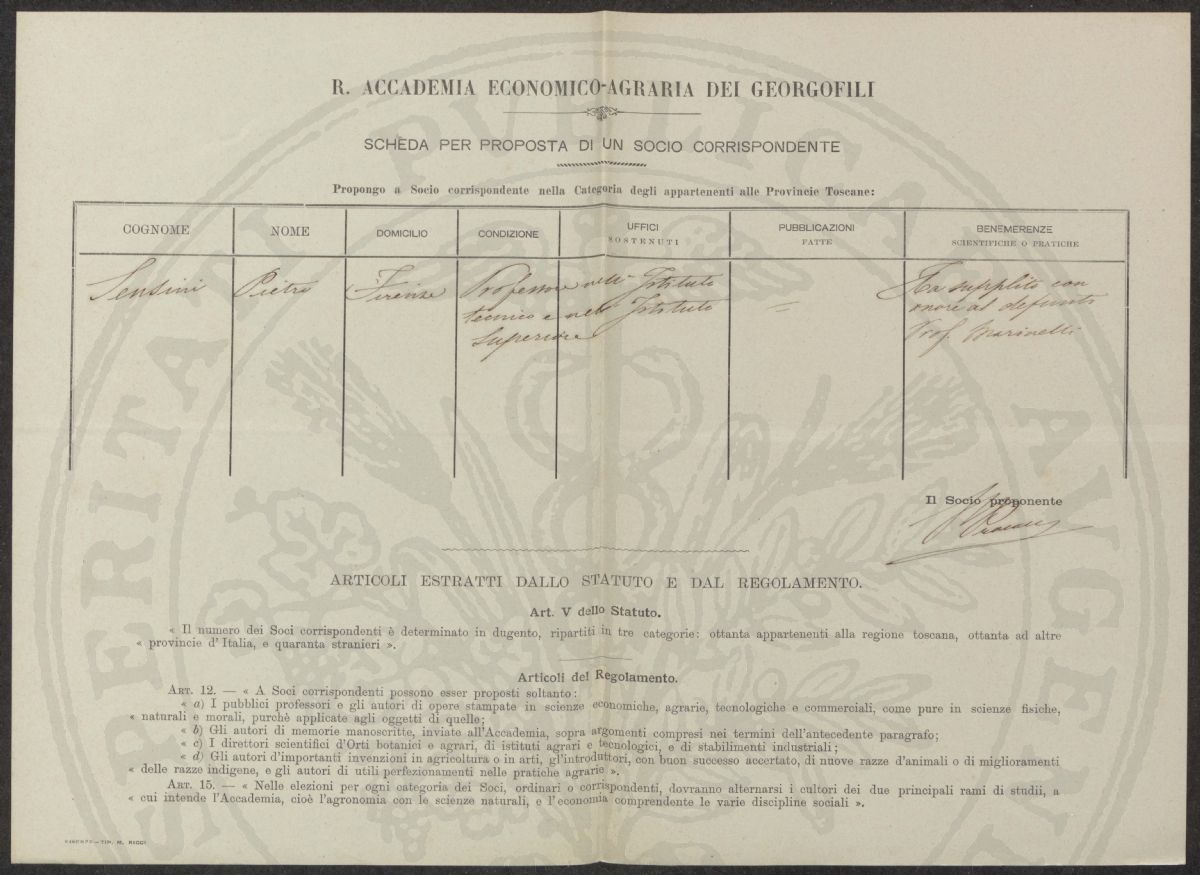 R. ACCADEMIA ECONOMICO-AGRARIA DEI GEORGOFILI
SCHEDA PER PROPOSTA DI UN SOCIO CORRISPONDENTE
Propongo a Socio corrispondente nella Categoria degli appartenenti alle Provincie Toscane:
COGNOME
NOME
DOMICILIO
CONDIZIONE
UFFICI
SOSTENUTI
PUBBLICAZIONI
FATTE
BENEMERENZE
SCIENTIFICHE O PRATICHE
Sensini
Pietro
Firenze
Professore nell' Istituto
tecnico e nello Istituto
Superiore
=
Ha supplito con
onore al defunto
Prof. Marinelli
Il Socio proponente
ARTICOLI ESTRATTI DALLO STATUTO E DAL REGOLAMENTO.
Art. V dello Statuto.
« Il numero dei Soci corrispondenti è determinato in dugento, ripartiti in tre categorie: ottanta appartenenti alla regione toscana, ottanta ad altre
« provincie d'Italia, e quaranta stranieri ».
Articoli del Regolamento.
ART. 12. — « A Soci corrispondenti possono esser proposti soltanto:
« a) I pubblici professori e gli autori di opere stampate in scienze economiche, agrarie, tecnologiche e commerciali, come pure in scienze fisiche,
« naturali e morali, purchè applicate agli oggetti di quelle;
« b) Gli autori di memorie manoscritte, inviate all'Accademia, sopra argomenti compresi nei termini dell'antecedente paragrafo;
« c) I direttori scientifici d'Orti botanici e agrari, di istituti agrari e tecnologici, e di stabilimenti industriali;
« d) Gli autori d'importanti invenzioni in agricoltura o in arti, gl'introduttori, con buon successo accertato, di nuove razze d'animali o di miglioramenti
« delle razze indigene, e gli autori di utili perfezionamenti nelle pratiche agrarie ».
ART. 15. — « Nelle elezioni per ogni categoria dei Soci, ordinari o corrispondenti, dovranno alternarsi i cultori dei due principali rami di studii, a
« cui intende l'Accademia, cioè l'agronomia con le scienze naturali, e l'economia comprendente le varie discipline sociali ».
FIRENZE — TIP. M. RICCI
PROSPERITATI PUBLICAE AVGENDAE